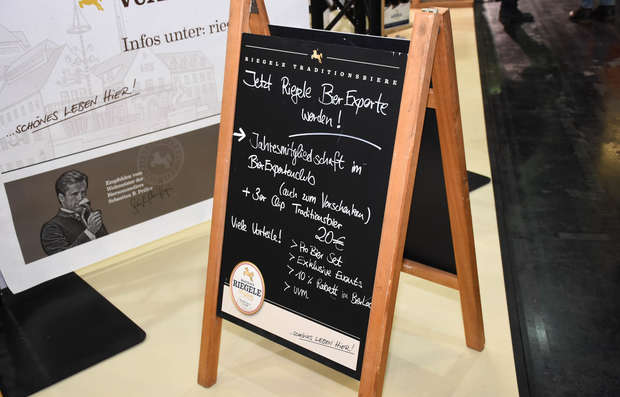 Infos unter: ries
...SCHÖNES LEBEN HIER!
Empfohlen vom
Weltmeister der
Biersommeliers
Sebastian B. Priller
RIEGELE TRADITIONSBIERE
Jetzt Riegele BierExperte
werden!
→ Jahresmitgliedschaft im
BierExpertenclub
(auch zum Verschenken)
+ 3er Clip Traditionsbier
20€
Viele Vorteile!
> Pro Bier Set
> Exklusive Events
> 10% Rabatt im BierLa
> uvm
RIEGELE
...SCHÖNES LEBEN HIER!